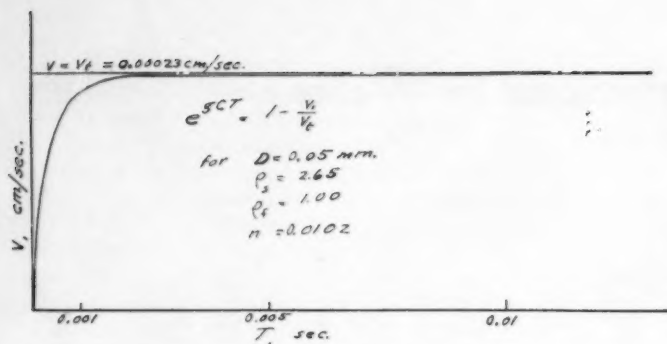 V = Vt = 0.00023 cm/sec.
e^gCT = 1 - V/Vt
for D = 0.05 mm.
ρs = 2.65
ρf = 1.00
n = 0.0102
V, cm/sec.
0.001 0.005 0.01
T, sec.